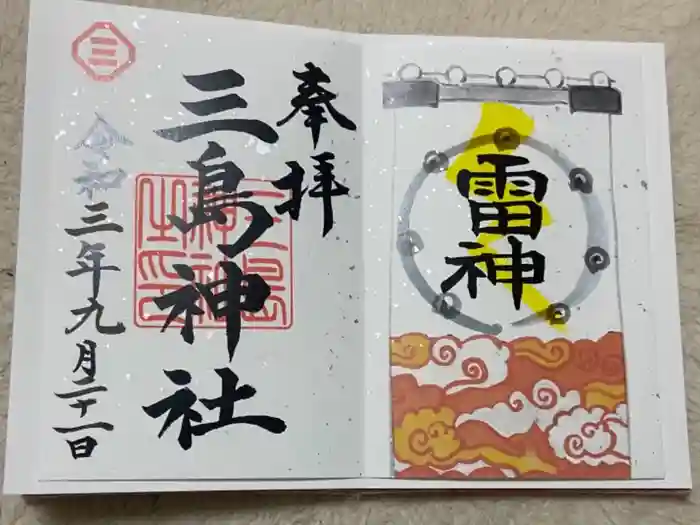 雷神
奉拝
三島神社
三
令和三年九月二十一日